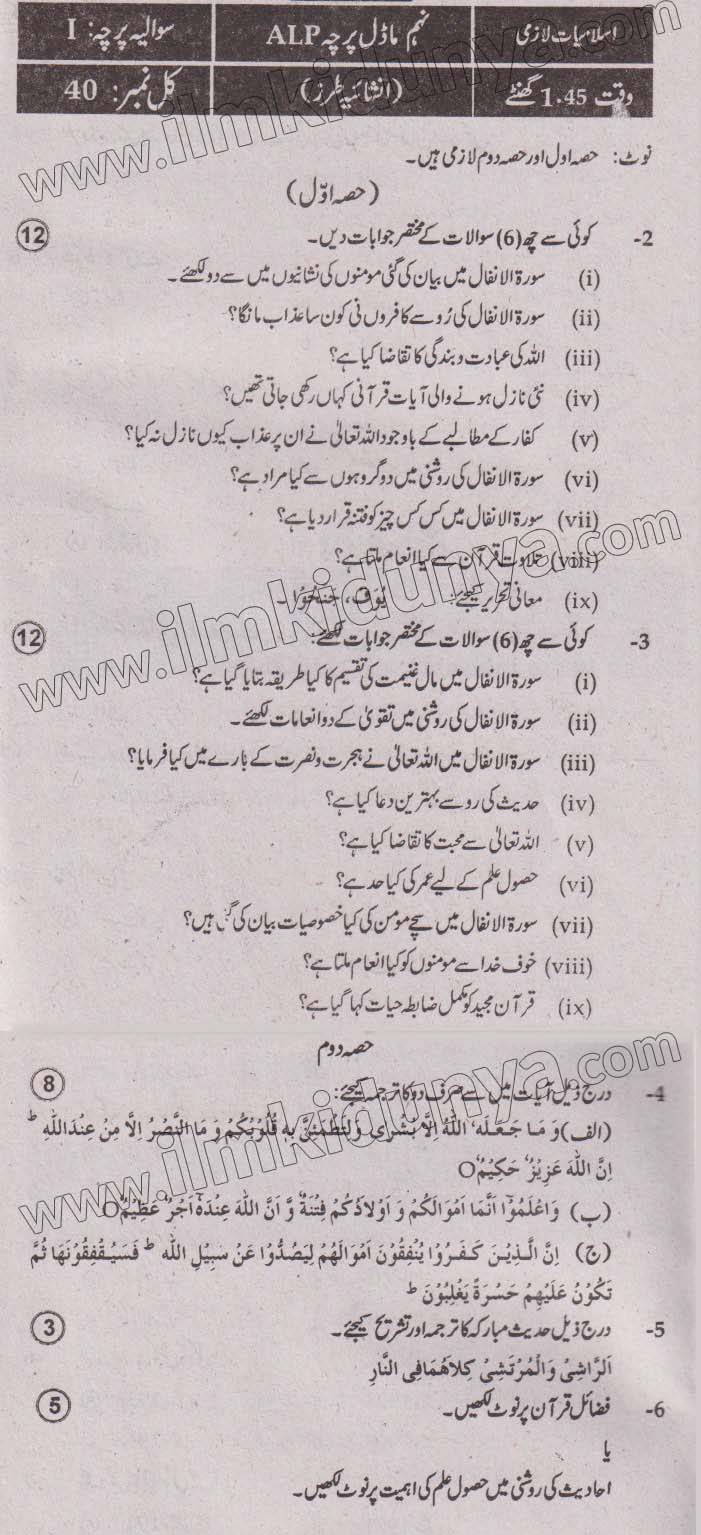 اسلامیات لازمی نہم ماڈل پرچہ ALP سوالیہ پرچہ: I
وقت 1.45 گھنٹے (انشائیہ طرز) کل نمبر: 40
نوٹ: حصہ اول اور حصہ دوم لازمی ہیں۔
(حصہ اوّل)
2- کوئی سے چھ (6) سوالات کے مختصر جوابات دیں۔ 12
(i) سورۃ الانفال میں بیان کی گئی مومنوں کی نشانیوں میں سے دو لکھئے۔
(ii) سورۃ الانفال کی رُو سے کافروں نی کون سا عذاب مانگا؟
(iii) اللہ کی عبادت و بندگی کا تقاضا کیا ہے؟
(iv) نئی نازل ہونے والی آیات قرآنی کہاں رکھی جاتی تھیں؟
(v) کفار کے مطالبے کے باوجود اللہ تعالیٰ نے ان پر عذاب کیوں نازل نہ کیا؟
(vi) سورۃ الانفال کی روشنی میں دو گروہوں سے کیا مراد ہے؟
(vii) سورۃ الانفال میں کس کس چیز کو فتنہ قرار دیا ہے؟
(viii) تلاوت قرآن سے کیا انعام ملتا ہے؟
(ix) معانی تحریر کیجئے: یُوَفَّ، جَنَحُوْا۔
3- کوئی سے چھ (6) سوالات کے مختصر جوابات لکھئے۔ 12
(i) سورۃ الانفال میں مال غنیمت کی تقسیم کا کیا طریقہ بتایا گیا ہے؟
(ii) سورۃ الانفال کی روشنی میں تقویٰ کے دو انعامات لکھئے۔
(iii) سورۃ الانفال میں اللہ تعالیٰ نے ہجرت و نصرت کے بارے میں کیا فرمایا؟
(iv) حدیث کی رو سے بہترین دعا کیا ہے؟
(v) اللہ تعالیٰ سے محبت کا تقاضا کیا ہے؟
(vi) حصول علم کے لیے عمر کی کیا حد ہے؟
(vii) سورۃ الانفال میں سچے مومن کی کیا خصوصیات بیان کی گئی ہیں؟
(viii) خوف خدا سے مومنوں کو کیا انعام ملتا ہے؟
(ix) قرآن مجید کو مکمل ضابطہ حیات کہا گیا ہے؟
حصہ دوم
4- درج ذیل آیات میں سے صرف دو کا ترجمہ کیجئے: 8
(الف) وَ مَا جَعَلَہُ اللّٰہُ اِلَّا بُشْرٰی وَلِتَطْمَئِنَّ بِہٖ قُلُوْبُکُمْ وَ مَا النَّصْرُ اِلَّا مِنْ عِنْدِ اللّٰہِ ط
اِنَّ اللّٰہَ عَزِیْزٌ حَکِیْمٌ O
(ب) وَاعْلَمُوْٓا اَنَّمَا اَمْوَالُکُمْ وَ اَوْلَادُکُمْ فِتْنَۃٌ وَّ اَنَّ اللّٰہَ عِنْدَہٗٓ اَجْرٌ عَظِیْمٌ O
(ج) اِنَّ الَّذِیْنَ کَفَرُوْا یُنْفِقُوْنَ اَمْوَالَھُمْ لِیَصُدُّوْا عَنْ سَبِیْلِ اللّٰہ ط فَسَیُنْفِقُوْنَھَا ثُمَّ
تَکُوْنُ عَلَیْھِمْ حَسْرَۃً یَغْلِبُوْنَ ط
5- درج ذیل حدیث مبارکہ کا ترجمہ اور تشریح کیجئے۔ 3
اَلرَّاشِیْ وَالْمُرْتَشِیْ کِلَاھُمَا فِی النَّارِ
6- فضائل قرآن پر نوٹ لکھیں۔ 5
یا
احادیث کی روشنی میں حصول علم کی اہمیت پر نوٹ لکھیں۔
www.ilmkidunya.com
www.ilmkidunya.com
www.ilmkidunya.com